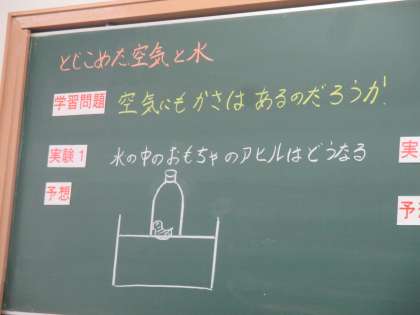 とじこめた空気と水
学習問題 空気にもかさはあるのだろうか
実験1 水の中のおもちゃのアヒルはどうなる
予想
実
予